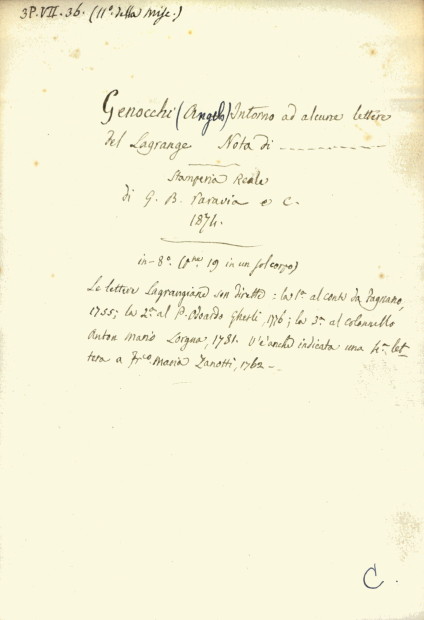 3P.VII.36. (11º. della Misc.)
Genocchi (Angelo) Intorno ad alcune lettere
del Lagrange Nota di
Stamperia Reale
di G. B. Paravia e C.
1874.
in-8º. (pne 19 in un sol corpo)
Le lettere Lagrangiane son dirette: la 1ª al conte da Fagnano,
1755; la 2ª al P. Odoardo Gherli, 1776; la 3ª al Colonnello
Anton Mario Lorgna, 1781. V'è anche indicata una 4ª let-
tera a Frco Maria Zanotti, 1762 –
C.